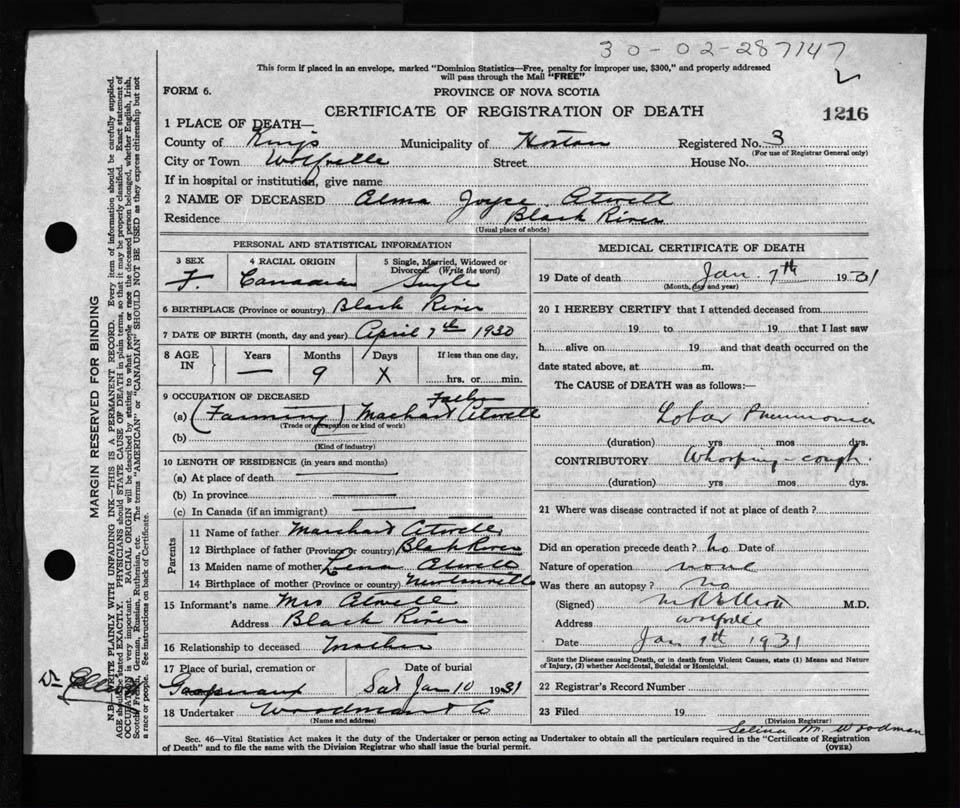 30-02-287147
This form if placed in an envelope, marked "Dominion Statistics—Free, penalty for improper use, $300," and properly addressed
will pass through the Mail "FREE"
FORM 6.
PROVINCE OF NOVA SCOTIA
CERTIFICATE OF REGISTRATION OF DEATH
1216
1 PLACE OF DEATH—
County of Kings Municipality of Horton Registered No. 3
(For use of Registrar General only)
City or Town Wolfville Street House No.
If in hospital or institution, give name
2 NAME OF DECEASED Alma Joyce Atwell
Residence Black River
(Usual place of abode)
PERSONAL AND STATISTICAL INFORMATION
3 SEX 4 RACIAL ORIGIN 5 Single, Married, Widowed or
Divorced. (Write the word)
F. Canadian Single
6 BIRTHPLACE (Province or country) Black River
7 DATE OF BIRTH (month, day and year) April 7th 1930
8 AGE IN Years Months Days If less than one day,
— 9 X hrs. or min.
9 OCCUPATION OF DECEASED Father
(a) (Farming) Atwell
(Trade or occupation or kind of work)
(b)
(Kind of industry)
10 LENGTH OF RESIDENCE (in years and months)
(a) At place of death
(b) In province
(c) In Canada (if an immigrant)
Parents
11 Name of father Atwell
12 Birthplace of father (Province or country) Black River
13 Maiden name of mother Lena Atwell
14 Birthplace of mother (Province or country)
15 Informant's name Mrs Atwell
Address Black River
16 Relationship to deceased Mother
17 Place of burial, cremation or Date of burial
Sat Jan 10 1931
18 Undertaker Woodman & Co
(Name and address)
MEDICAL CERTIFICATE OF DEATH
19 Date of death Jan. 7th 1931
(Month, day and year)
20 I HEREBY CERTIFY that I attended deceased from
19 to 19 that I last saw
h alive on 19 and that death occurred on the
date stated above, at m.
The CAUSE OF DEATH was as follows:
Lobar Pneumonia
(duration) yrs mos dys.
CONTRIBUTORY Whooping-cough.
(duration) yrs mos dys.
21 Where was disease contracted if not at place of death?
Did an operation precede death? no Date of
Nature of operation none
Was there an autopsy? no
(Signed) M.R. Elliott M.D.
Address Wolfville
Date Jan 1931
State the Disease causing Death, or in death from Violent Causes, state (1) Means and Nature
of Injury, (2) whether Accidental, Suicidal or Homicidal.
22 Registrar's Record Number
23 Filed 19
(Division Registrar)
Selina M. Woodman
Sec. 46—Vital Statistics Act makes it the duty of the Undertaker or person acting as Undertaker to obtain all the particulars required in the "Certificate of Registration
of Death" and to file the same with the Division Registrar who shall issue the burial permit.
(OVER)
MARGIN RESERVED FOR BINDING
N.B.—WRITE PLAINLY WITH UNFADING INK—THIS IS A PERMANENT RECORD. Every item of information should be carefully supplied.
AGE should be stated EXACTLY. PHYSICIANS should STATE CAUSE OF DEATH in plain terms, so that it may be properly classified. Exact statement of
OCCUPATION is very important. RACIAL ORIGIN will be described by stating to what people or race the deceased person belonged, whether English, Irish,
Scotch, French, German, Russian, Ruthenian, etc. The terms "AMERICAN" or "CANADIAN" SHOULD NOT BE USED as they express citizenship but not
a race or people. See instructions on back of Certificate.